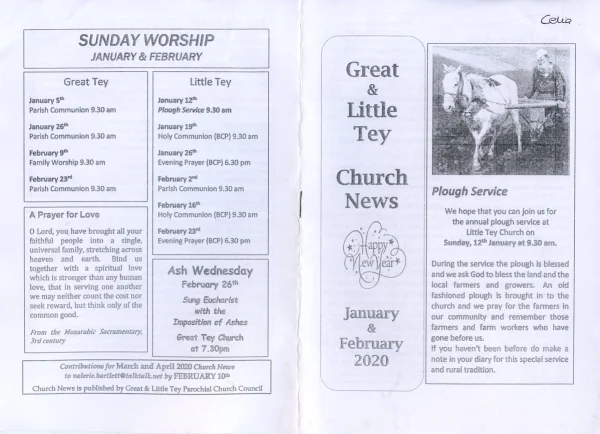 SUNDAY WORSHIP
JANUARY & FEBRUARY
Great Tey
January 5th
Parish Communion 9.30 am
January 26th
Parish Communion 9.30 am
February 9th
Family Worship 9.30 am
February 23rd
Parish Communion 9.30 am
A Prayer for Love
O Lord, you have brought all your
faithful people into a single,
universal family, stretching across
heaven and earth. Bind us
together with a spiritual love
which is stronger than any human
love, that in serving one another
we may neither count the cost nor
seek reward, but think only of the
common good.
From the Mozarabic Sacramentary,
3rd century
Little Tey
January 12th
Plough Service 9.30 am
January 19th
Holy Communion (BCP) 9.30 am
January 26th
Evening Prayer (BCP) 6.30 pm
February 2nd
Parish Communion 9.30 am
February 16th
Holy Communion (BCP) 9.30 am
February 23rd
Evening Prayer (BCP) 6.30 pm
Ash Wednesday
February 26th
Sung Eucharist
with the
Imposition of Ashes
Great Tey Church
at 7.30pm
Contributions for March and April 2020 Church News
to valerie.bartlett@talktalk.net by FEBRUARY 10th
Church News is published by Great & Little Tey Parochial Church Council
Celia
Great
&
Little
Tey
Church
News
Happy
New Year
January
&
February
2020
Plough Service
We hope that you can join us for
the annual plough service at
Little Tey Church on
Sunday, 12th January at 9.30 am.
During the service the plough is blessed
and we ask God to bless the land and the
local farmers and growers. An old
fashioned plough is brought in to the
church and we pray for the farmers in
our community and remember those
farmers and farm workers who have
gone before us.
If you haven't been before do make a
note in your diary for this special service
and rural tradition.